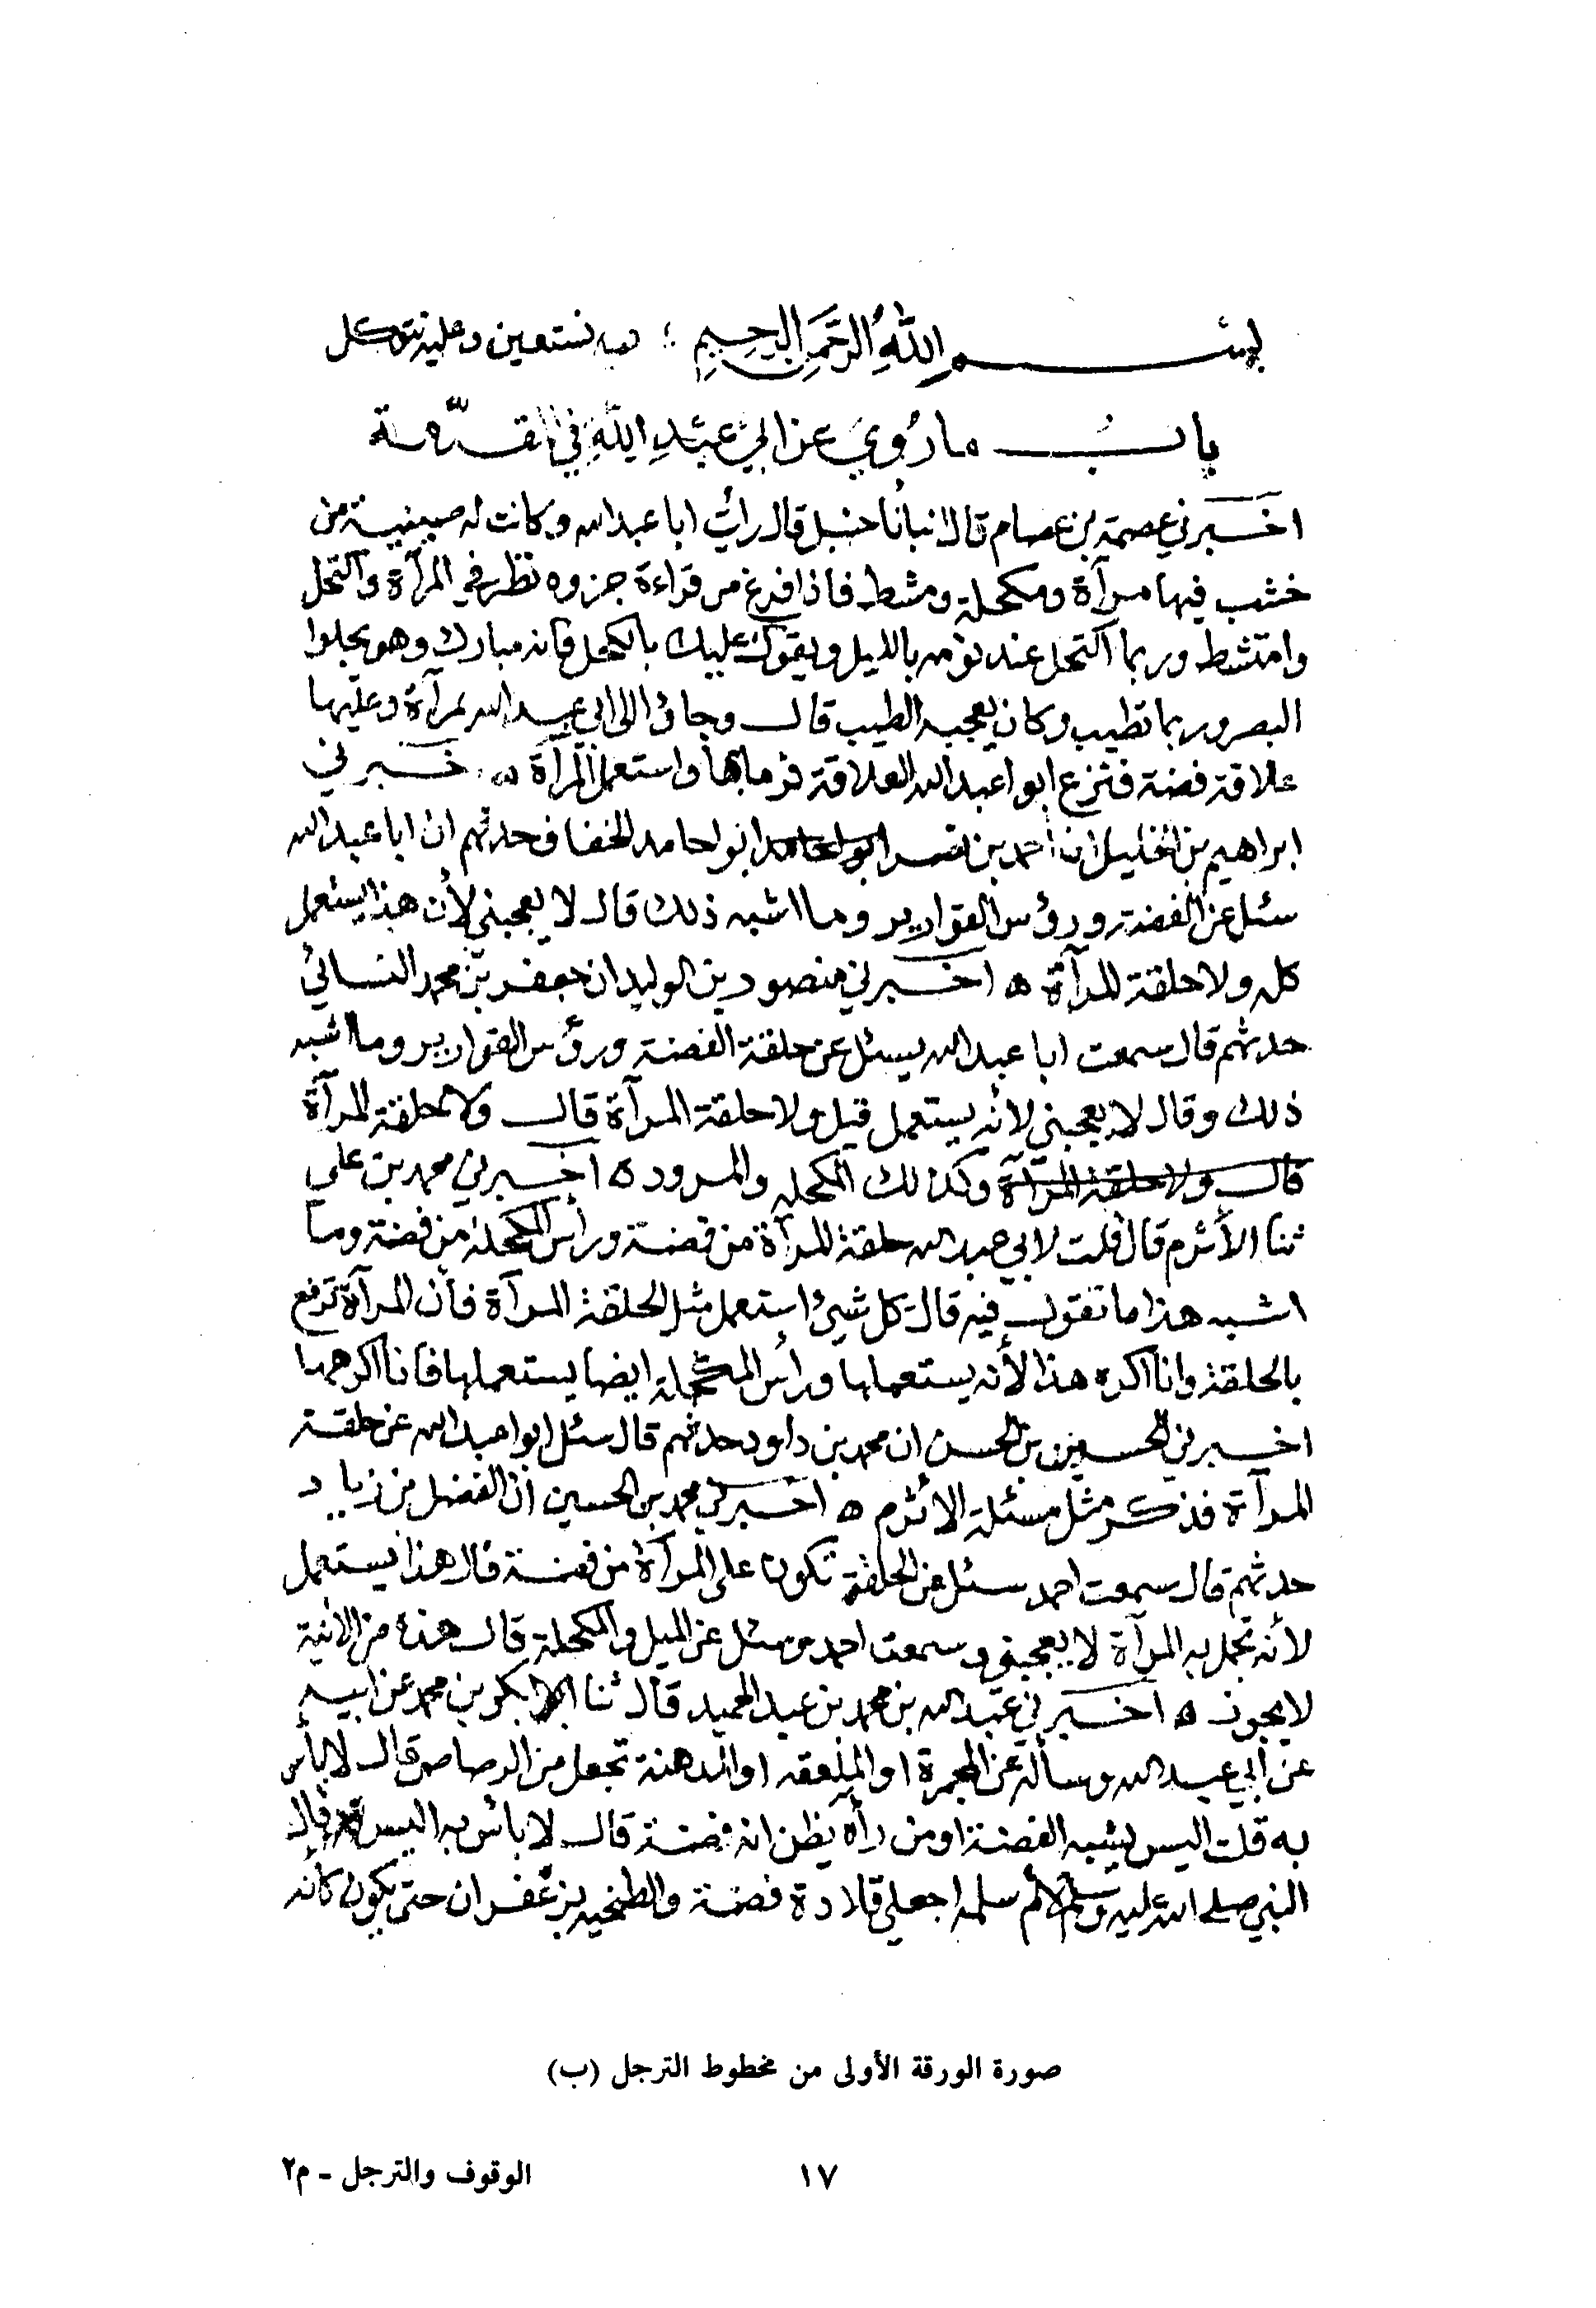 بسم اللهِ الرَّحمَن الرحيم وبه نستعين وعليه نتوكل
باب ما رُوي عن ابي عبدِ اللهِ في المقدّمة
اخبرني عصمة بن عصام قال انبأنا حنبل قال رأيت ابا عبدالله وكانت له صينية من
خشب فيها مرآة ومكحلة ومشط فاذا فرغ من قراءة جزوه نظر في المرآة واكتحل
وامتشط وربما اكتحل عند نومه بالليل ويقول عليك بالكحل فانه مبارك وهو يجلوا
البصر وربما تطيب وكان يعجبه الطيب قال وجاؤا الى ابي عبدالله بمرآة وعليها
علاقة فضة فنزع ابوا عبدالله العلاقة فرما بها واستعمل المرآة ه خبرني
ابراهيم بن الخليل ان احمد بن نصر ابوا حامد الخفاف حدثهم ان ابا عبدالله
سئل عن الفضة ورؤس القوارير وما اشبه ذلك قال لا يعجبني لأن هذا يستعمل
كله ولا حلقة المرآة ه اخبرني منصور بن الوليد ان جعفر بن محمد النسائي
حدثهم قال سمعت ابا عبدالله يسئل عن حلقة الفضة ورؤس القوارير وما اشبه
ذلك وقال لا يعجبني لأنه يستعمل قيل ولا حلقة المرآة قال ولا حلقة المرآة
قال ولا حلقة المرآة وكذلك المكحلة والمرود ه اخبرني محمد بن علي
ثنا الأثرم قال قلت لابي عبدالله حلقة المرآة من فضة ورأس المكحلة من فضة وما
اشبه هذا ما تقول فيه قال كل شيئ استعمل مثل الحلقة المرآة فأن المرآة ترفع
بالحلقة وانا اكره هذا لأنه يستعملها ورأس المكحلة ايضا يستعملها فانا اكرهها
اخبرني الحسين بن الحسن ان محمد بن داود حدثهم قال سئل ابوا عبدالله عن حلقة
المرآة فذكر مثل مسئلة الاثرم ه اخبرني محمد بن الحسين أن الفضل بن زياد
حدثهم قال سمعت احمد سئل عن الحلقة تكون على المرآة من فضة قال هذا يستعمل
لأنه تحمل به المرآة لا يعجبني وسمعت احمد وسئل عن الميل والمكحلة قال هذه من الآنية
لا يجوز ه اخبرني عبدالله بن محمد بن عبد الحميد قال ثنا بكر بن محمد عن ابيه
عن أبي عبدالله وسأله عن المجمرة او الملعقه او المدهنة تجعل من الرصاص قال لا بأس
به قلت اليس يشبه الفضة او من رآه يظن انه فضة قال لا بأس به اليس قال
النبي صلى الله عليه وسلم لأم سلمه اجعلي قلادة فضة والطخيه بزعفران حتى يكون كأنه
صورة الورقة الأولى من مخطوط الترجل (ب)
١٧
الوقوف والترجل - م٢